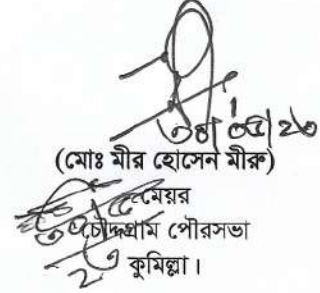 ৩০/০৫/২৩
(মোঃ মীর হোসেন মীরু)
মেয়র
চৌদ্দগ্রাম পৌরসভা
কুমিল্লা।